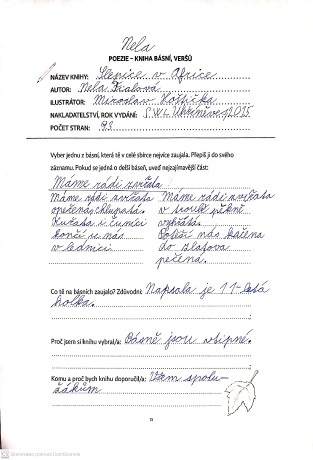 Nela
POEZIE – KNIHA BÁSNÍ, VERŠŮ
NÁZEV KNIHY: Slepice v Africe
AUTOR: Nela
ILUSTRÁTOR: Miroslav
NAKLADATELSTVÍ, ROK VYDÁNÍ: 2015
POČET STRAN: 93
Vyber jednu z básní, která tě v celé sbírce nejvíce zaujala. Přepiš ji do svého
záznamu. Pokud se jedná o delší báseň, uveď nejzajímavější část:
Máme rádi zvířata
Máme rádi zvířata Máme rádi zvířata
opečená chlupatá. v troubě pěkně
Kuřata i čuníci vyhřátá.
končí u nás Potěší nás kačena
v lednici do zlatova
pečená.
Co tě na básních zaujalo? Zdůvodni: Napsala je 11-letá
holka.
Proč jsem si knihu vybral/a: Básně jsou vtipné.
Komu a proč bych knihu doporučil/a: Všem spolu-
žákům